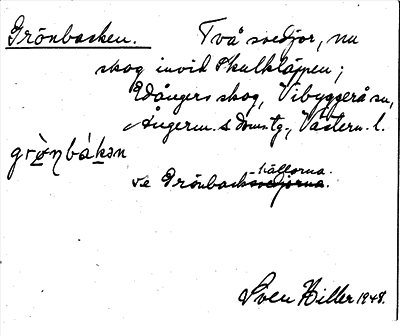 Grönbacken. Två svedjor, nu
skog invid Skulkläppen;
Edångers skog, Vibyggerå sn,
Ångerm. s Doms.tg., Västern. l.
grö̀nbákən
se Grönback-hällorna.
Sven Hiller 1948.